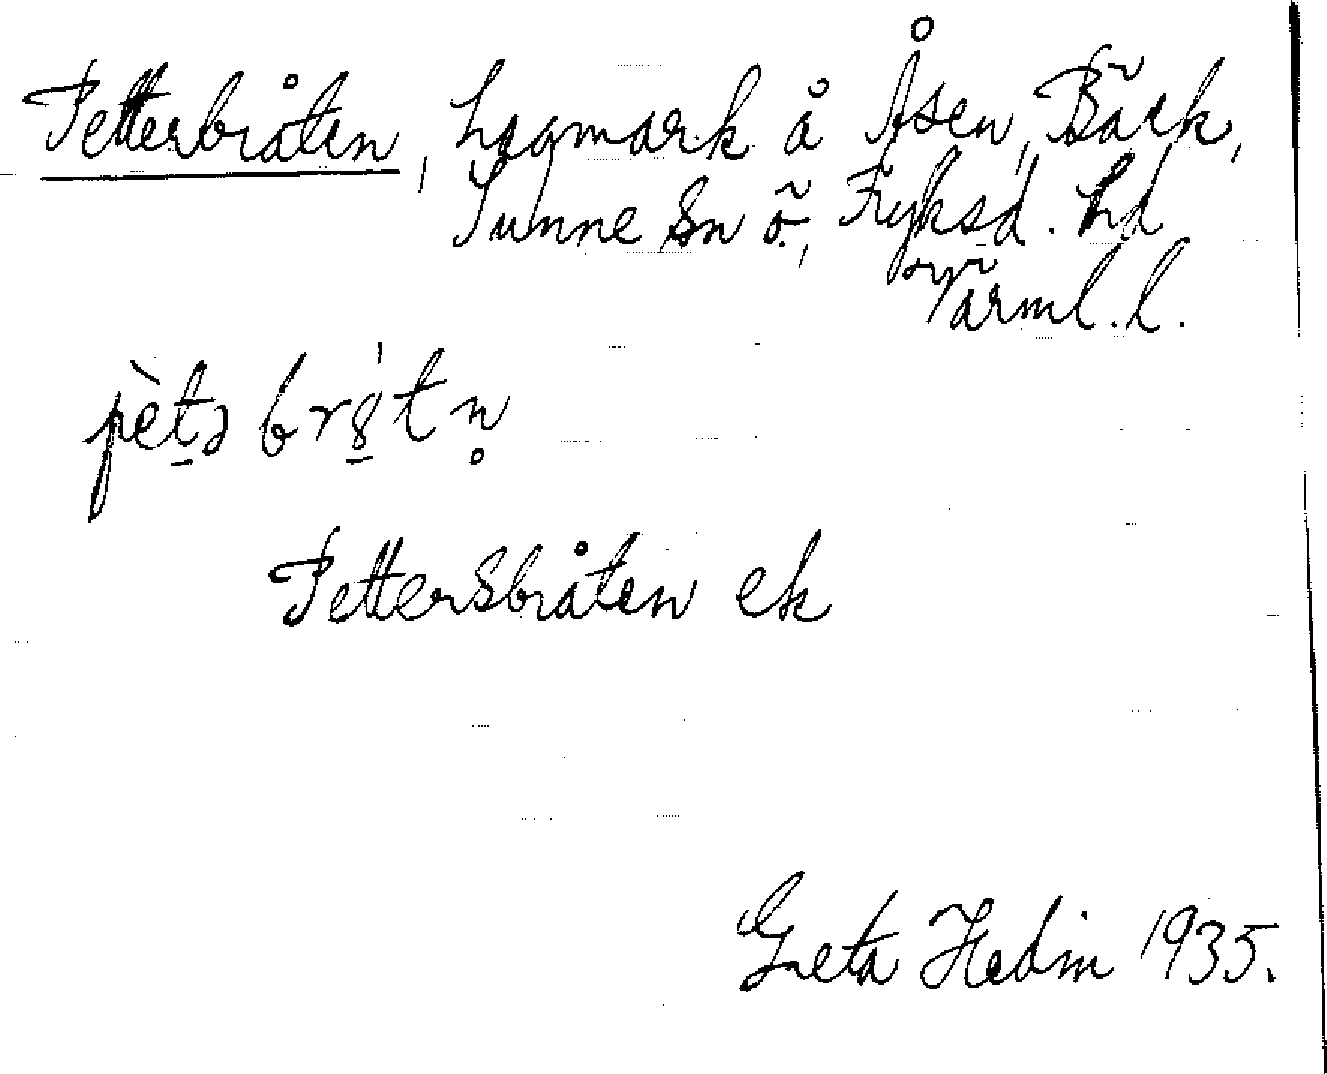 Petterbråten, hagmark å Åsen, Bäck,
Sunne sn Ö, Fryksd. hd
Värml. l.
pèt̲ə brɣ̲́tn̥
Pettersbråten ek
Greta Hedin 1935.